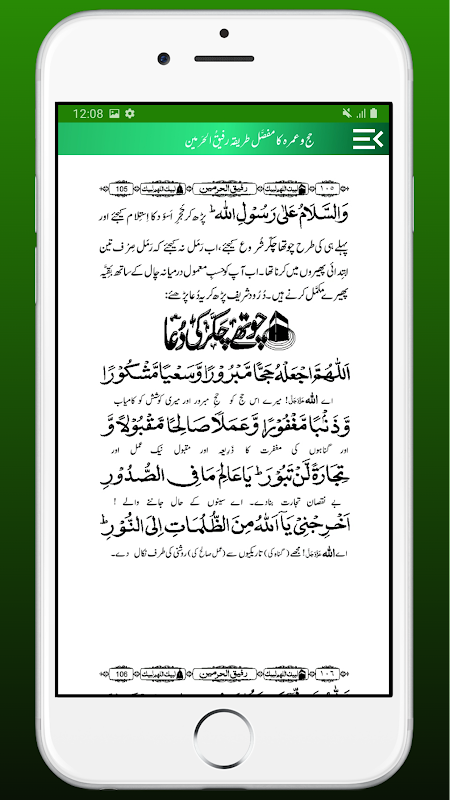 12:08
حج و عمرہ کا مفصّل طریقہ رفیق الحرمین
105 لبیك اللھم لبیك رفیق الحرمین لبیك اللھم لبیك ١٠٥
وَالسَّلَامُ عَلٰی رَسُوْلِ اللّٰهِ ؕ پڑھ کر حَجَرِ اَسْوَد کا اِسْتِلام کیجئے اور
پہلے ہی کی طرح چوتھا چکّر شُروع کیجئے، اب رَمَل نہ کیجئے کہ رَمَل صِرف تین
اِبتدائی پھیروں میں کرنا تھا۔ اب آپ کو حسبِ معمول درمیانہ چال کے ساتھ بقِیَّہ
پھیرے مکمَّل کرنے ہیں۔ دُرُود شریف پڑھ کر یہ دُعا پڑھئے:
چوتھے چکر کی دُعا
اَللّٰهُمَّ اجْعَلْهُ حَجًّا مَّبْرُوْرًا وَّسَعْيًا مَّشْكُوْرًا
اے اللّٰہ عَزَّوَجَلَّ! میرے اس حج کو حجِ مبرور اور میری کوشش کو کامیاب
وَّذَنْۢبًا مَّغْفُوْرًا وَّعَمَلًا صَالِحًا مَّقْبُوْلًا وَّ
اور گناہوں کی مغفرت کا ذریعہ اور مقبول نیک عمل اور
تِجَارَةً لَّنْ تَبُوْرَ ؕ يَا عَالِمَ مَا فِى الصُّدُوْرِ
بے نقصان تجارت بنادے۔ اے سینوں کے حال جاننے والے !
اَخْرِجْنِىْ يَآ اَللّٰهُ مِنَ الظُّلُمَاتِ اِلَى النُّوْرِ ؕ
اے اللّٰہ عَزَّوَجَلَّ! مجھے (گناہ کی) تاریکیوں سے (عمل صالح کی) روشنی کی طرف نکال دے۔
106 لبیك اللھم لبیك رفیق الحرمین لبیك اللھم لبیك ١٠٦